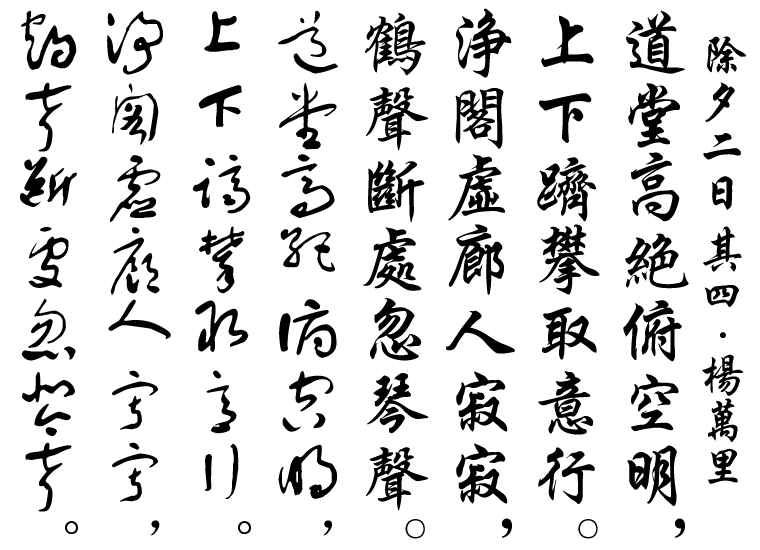 除夕二日 其四·楊萬里
道堂高絕俯空明,
上下躋攀取意行。
浄閣虛廊人寂寂,
鶴聲斷處忽琴聲。
道堂高絕俯空明,
上下躋攀取意行。
浄閣虛廊人寂寂,
鶴聲斷處忽琴聲。